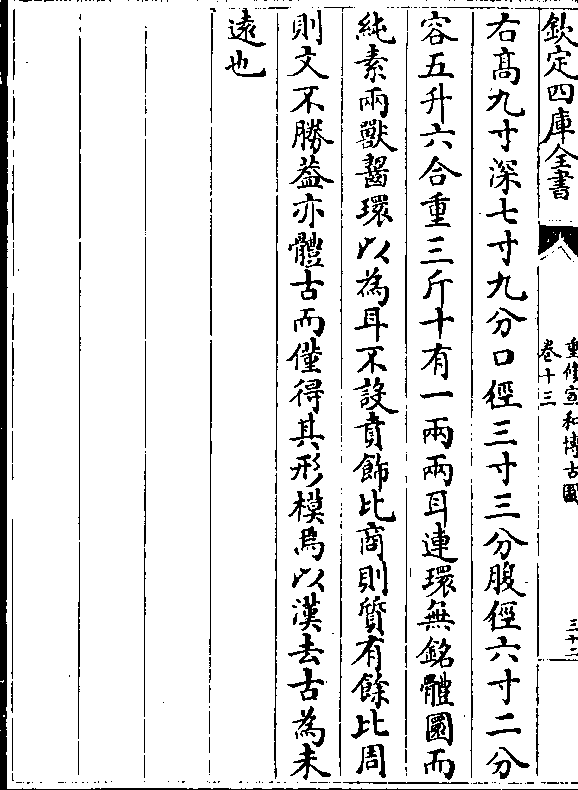 欽定四庫全書
重修宣和博古圖
卷十三
三十二
右髙九寸深七寸九分口徑三寸三分腹徑六寸二分
容五升六合重三斤十有一兩兩耳連環無銘體圜而
純素兩獸齧環以為耳不設賁飾比商則質有餘比周
則文不勝葢亦體古而僅得其形模焉以漢去古為未
逺也